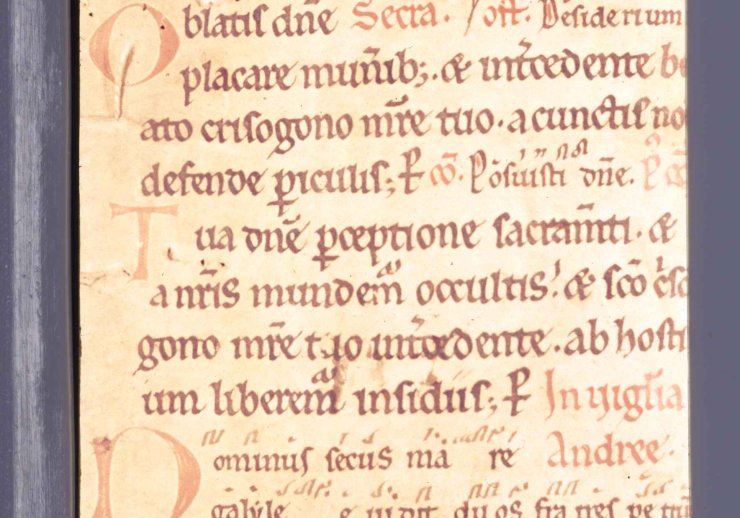 Oblatis dn̄e Secra. Off. Desiderium
placare munib; & int̄cedente be
ato crisogono mr̄e tuo. a cunctis no
defende ꝑiculis; P̄ cō. Posuisti dn̄e. P̄ cō
Tua dn̄e ꝑceptione sacram̄ti. & 
a nr̄is mundem̄ occultis. & sc̄o c̄so
gono mr̄e tuo int̄cedente. ab hosti
um liberem̄ insidiis; P̄ In uigłia
Dominus secus ma re Andree.
galyle e uidit duos fratres petru